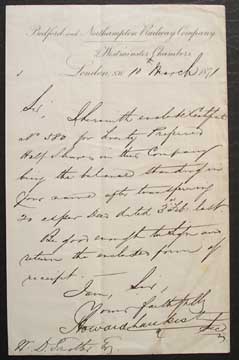 Bedford and Northampton Railway Company
2 Westminster Chambers
London, S.W. 10th March 1871
Sir,
I herewith enclose Certificate
No 580 for twenty Preferred
Half Shares in this Company
being the balance standing in
Your name after transferring
20 as per Deed dated 3rd Feb. last
Be good enough to sign and
return the enclosed form of
receipt.
I am, Sir,
Yours faithfully
Secy
W. D. Esq